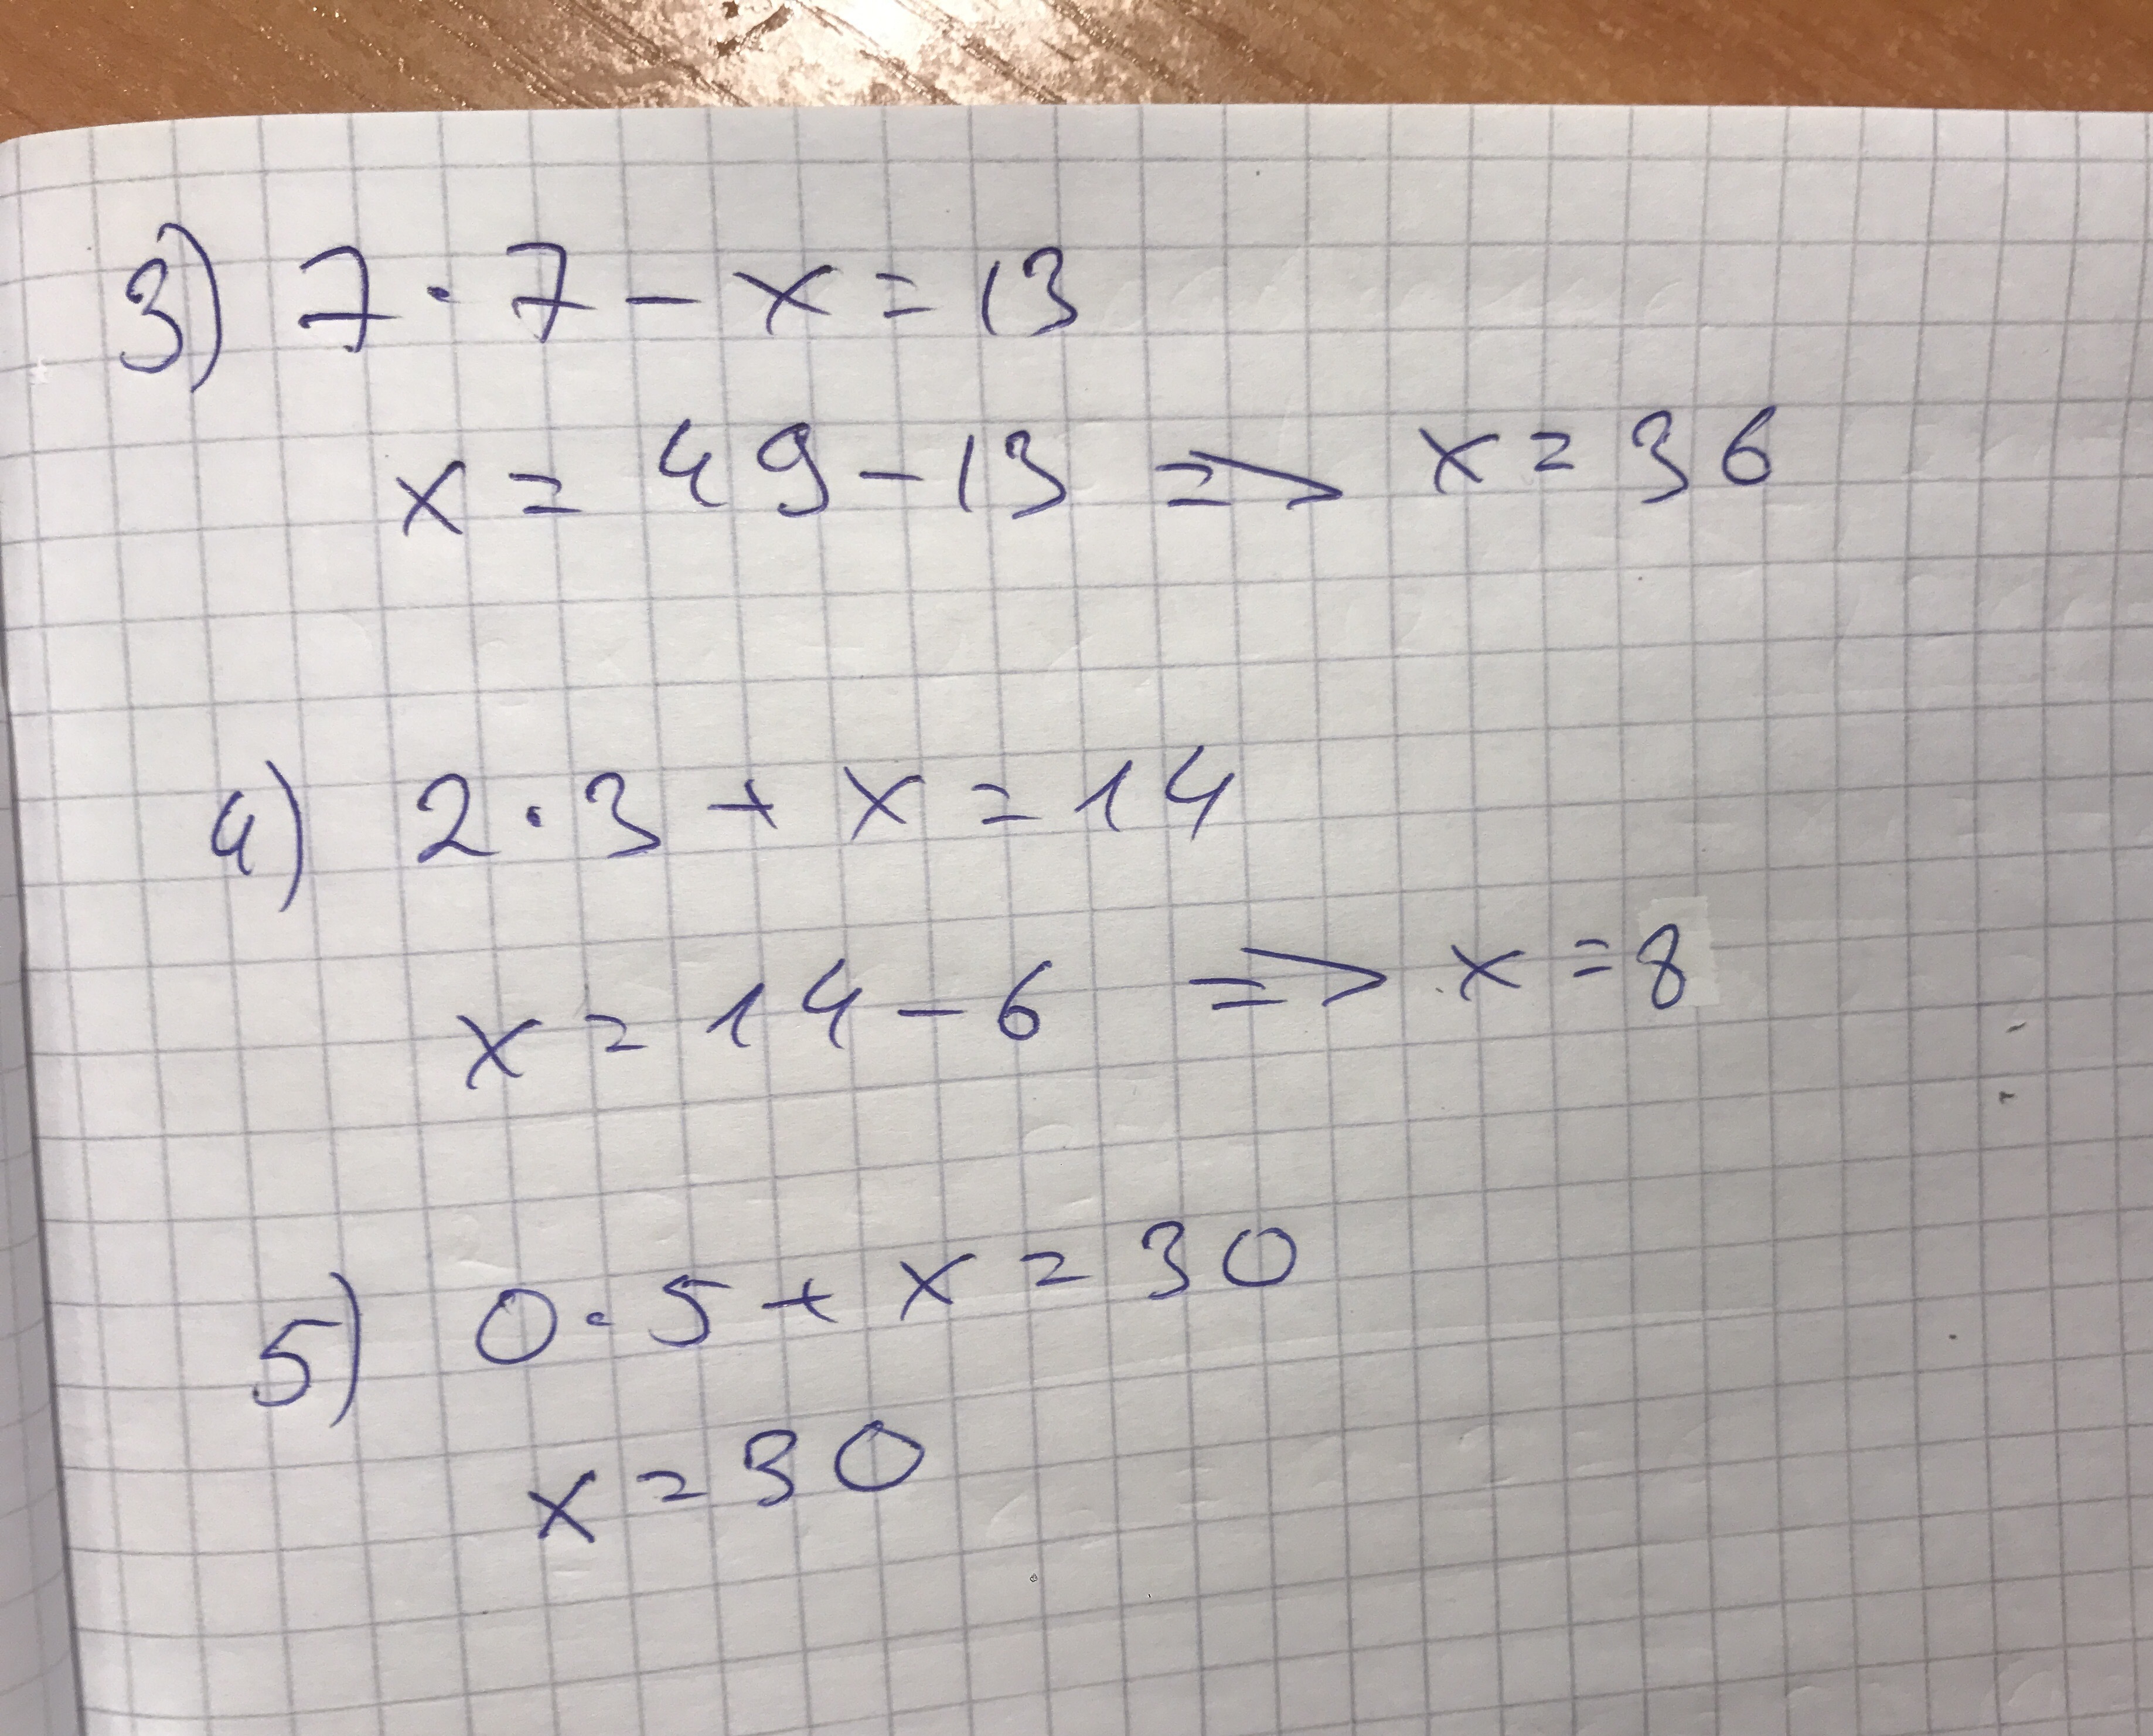 3) 7 · 7 - x = 13
x = 49 - 13 => x = 36
4) 2 · 3 + x = 14
x = 14 - 6 => x = 8
5) 0 · 5 + x = 30
x = 30